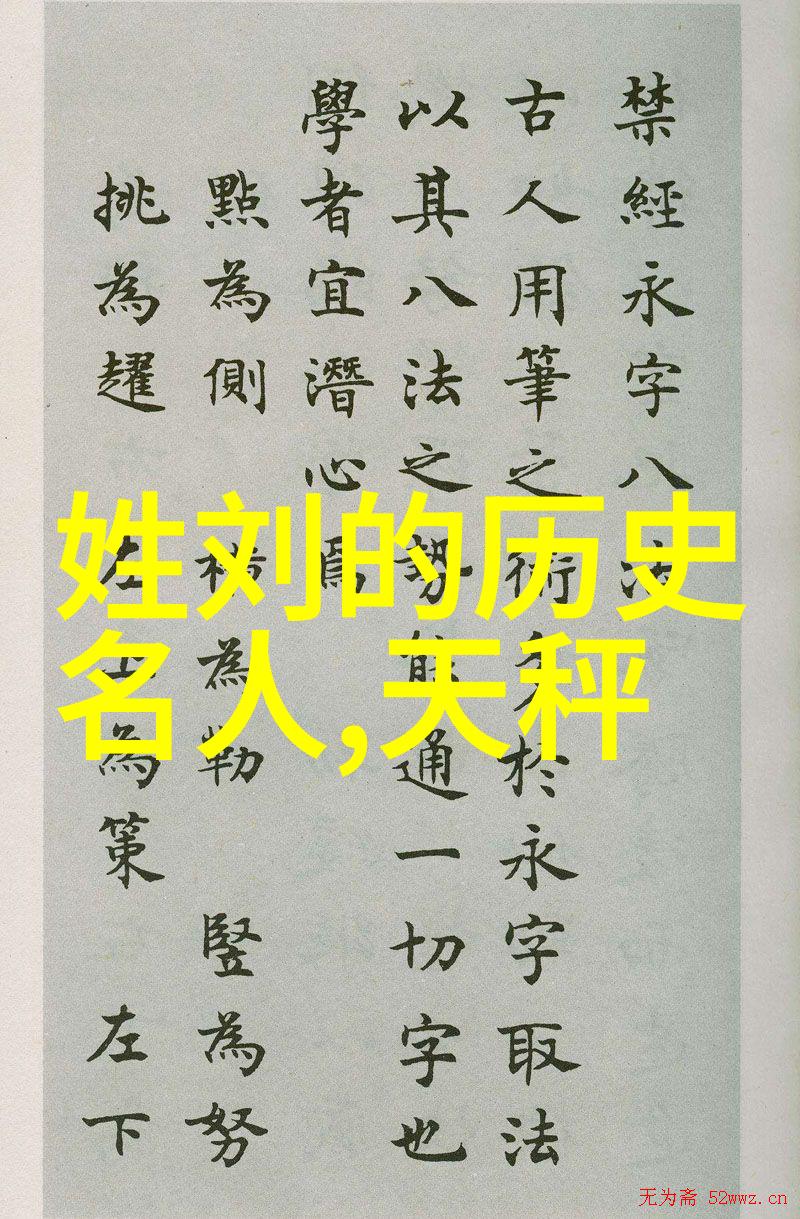 禁經永字八法
古人用筆之術多扵永字取法
以其八法之勢能通一切字也
學者宜潛心焉
點為側 橫為勒 竪為努
挑為趯 左上為策 左下
姓刘的历史
名人,天秤
无为斋 52wwz.cn